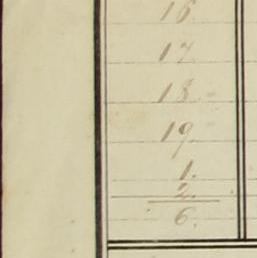 16
17
18
19
1.
2.
6.